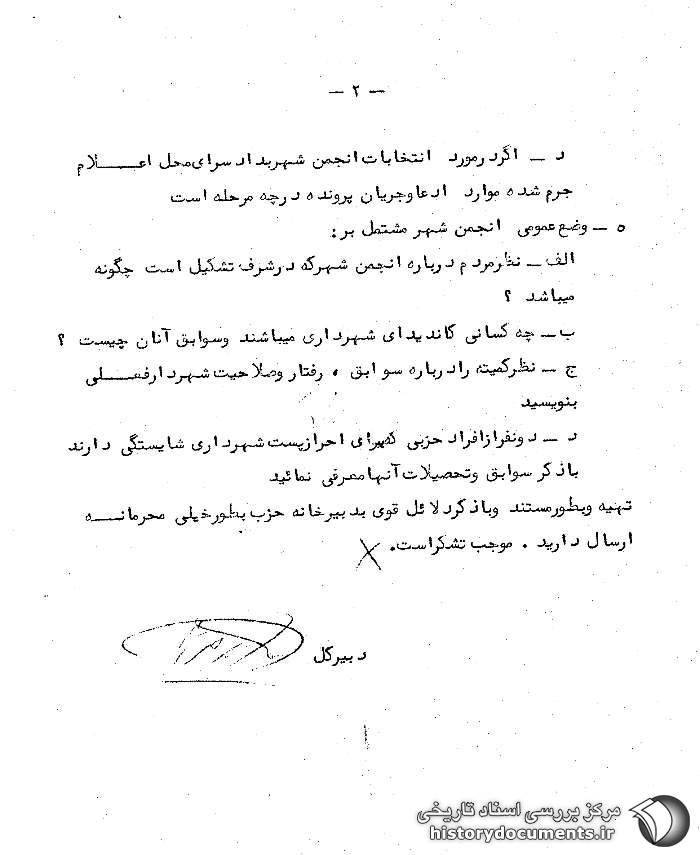 — ۲ —
د — اگر در مورد انتخابات انجمن شهر بدادسرای محل اعــــلام
جرم شده موارد ادعا وجریان پرونده در چه مرحله است
ه — وضع عمومی انجمن شهر مشتمل بر :
الف — نظر مردم درباره انجمن شهر که در شرف تشکیل است چگونه
میباشد ؟
ب — چه کسانی کاندیدای شهرداری میباشند وسوابق آنان چیست ؟
ج — نظر کمیته را درباره سوابق ، رفتار وصلاحیت شهردار فعــــلی
بنویسید
د — دونفر از افراد حزبی که برای احراز پست شهرداری شایستگی دارند
با ذکر سوابق وتحصیلات آنها معرفی نمائید
تهیه وبطور مستند وبا ذکر دلائل قوی بدبیرخانه حزب بطور خیلی محرمانــه
ارسال دارید . موجب تشکر است .
دبیرکل
مرکز بررسی اسناد تاریخی
historydocuments.ir